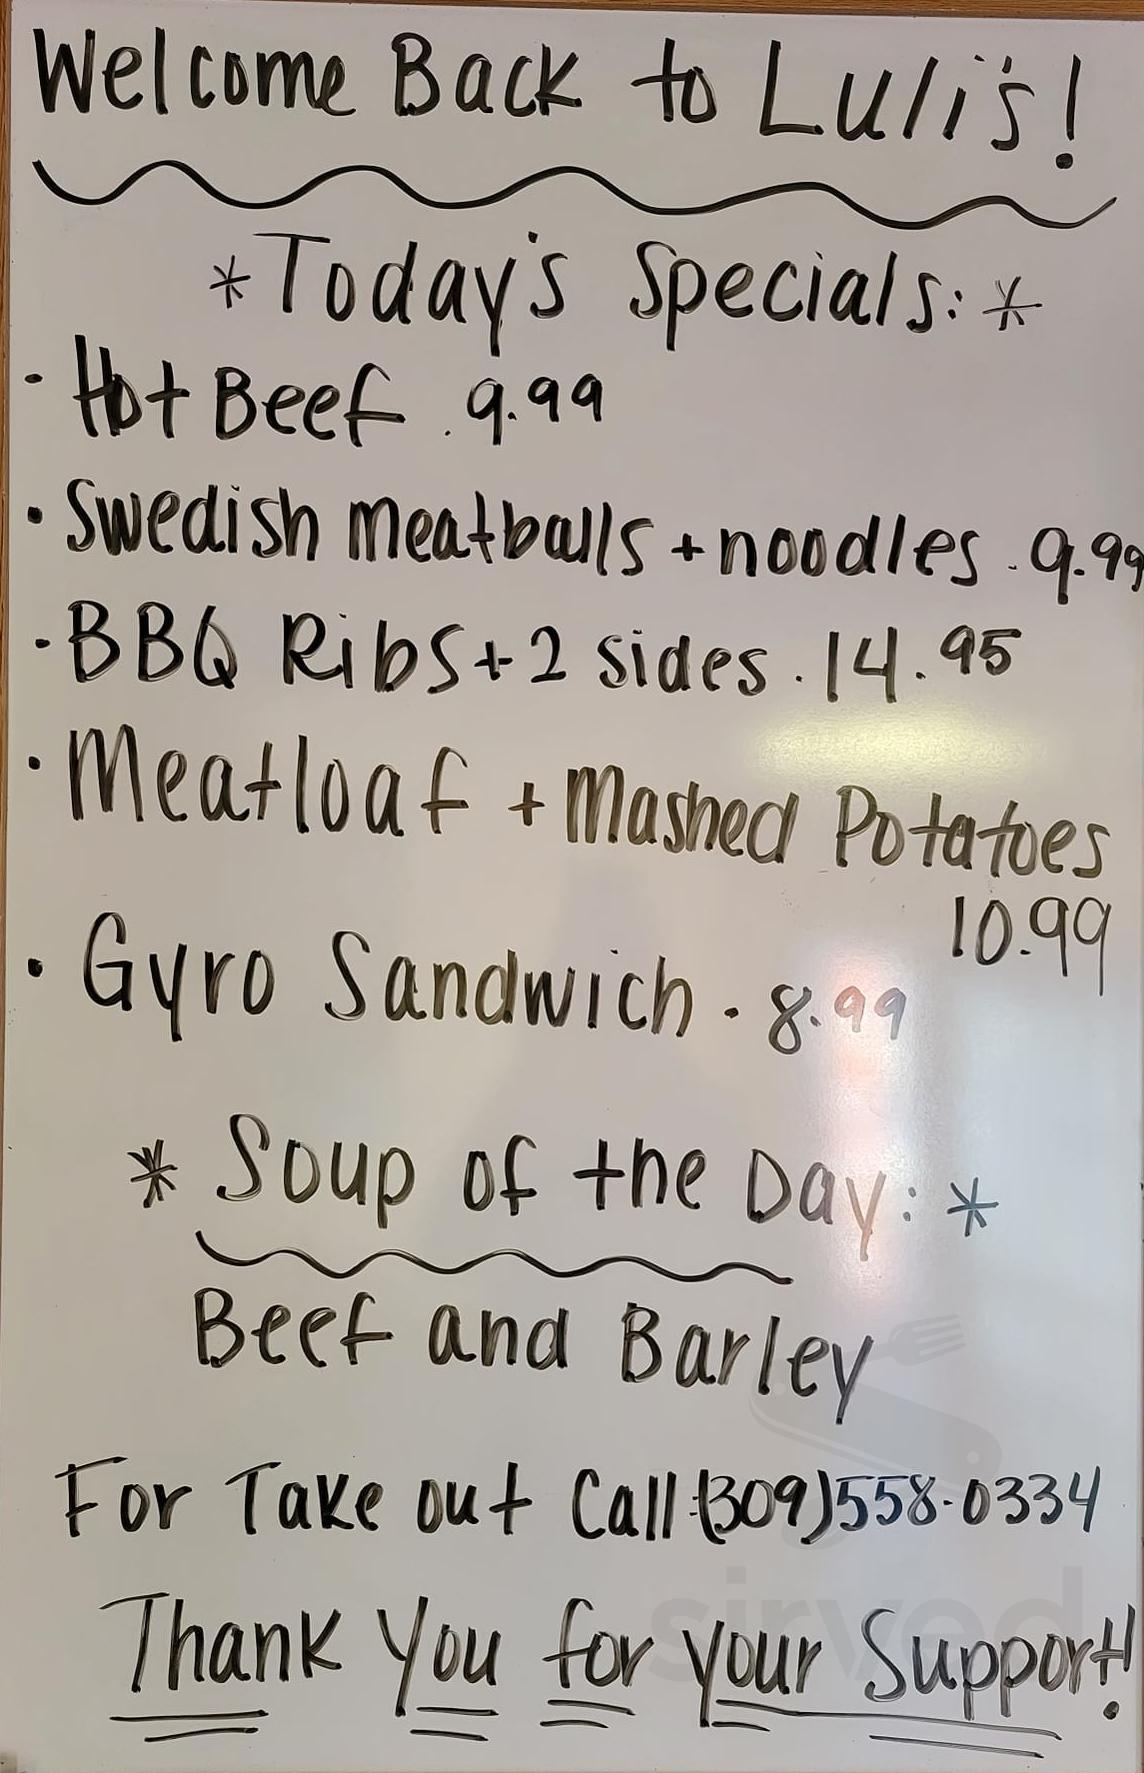 Welcome Back to Luli's!
*Today's Specials:*
· Hot Beef . 9.99
· Swedish meatballs + noodles . 9.99
· BBQ Ribs + 2 sides . 14.95
· Meatloaf + Mashed Potatoes
10.99
· Gyro Sandwich . 8.99
* Soup of the Day: *
Beef and Barley
For Take out Call:(309)558-0334
Thank You for your Support!
sirved